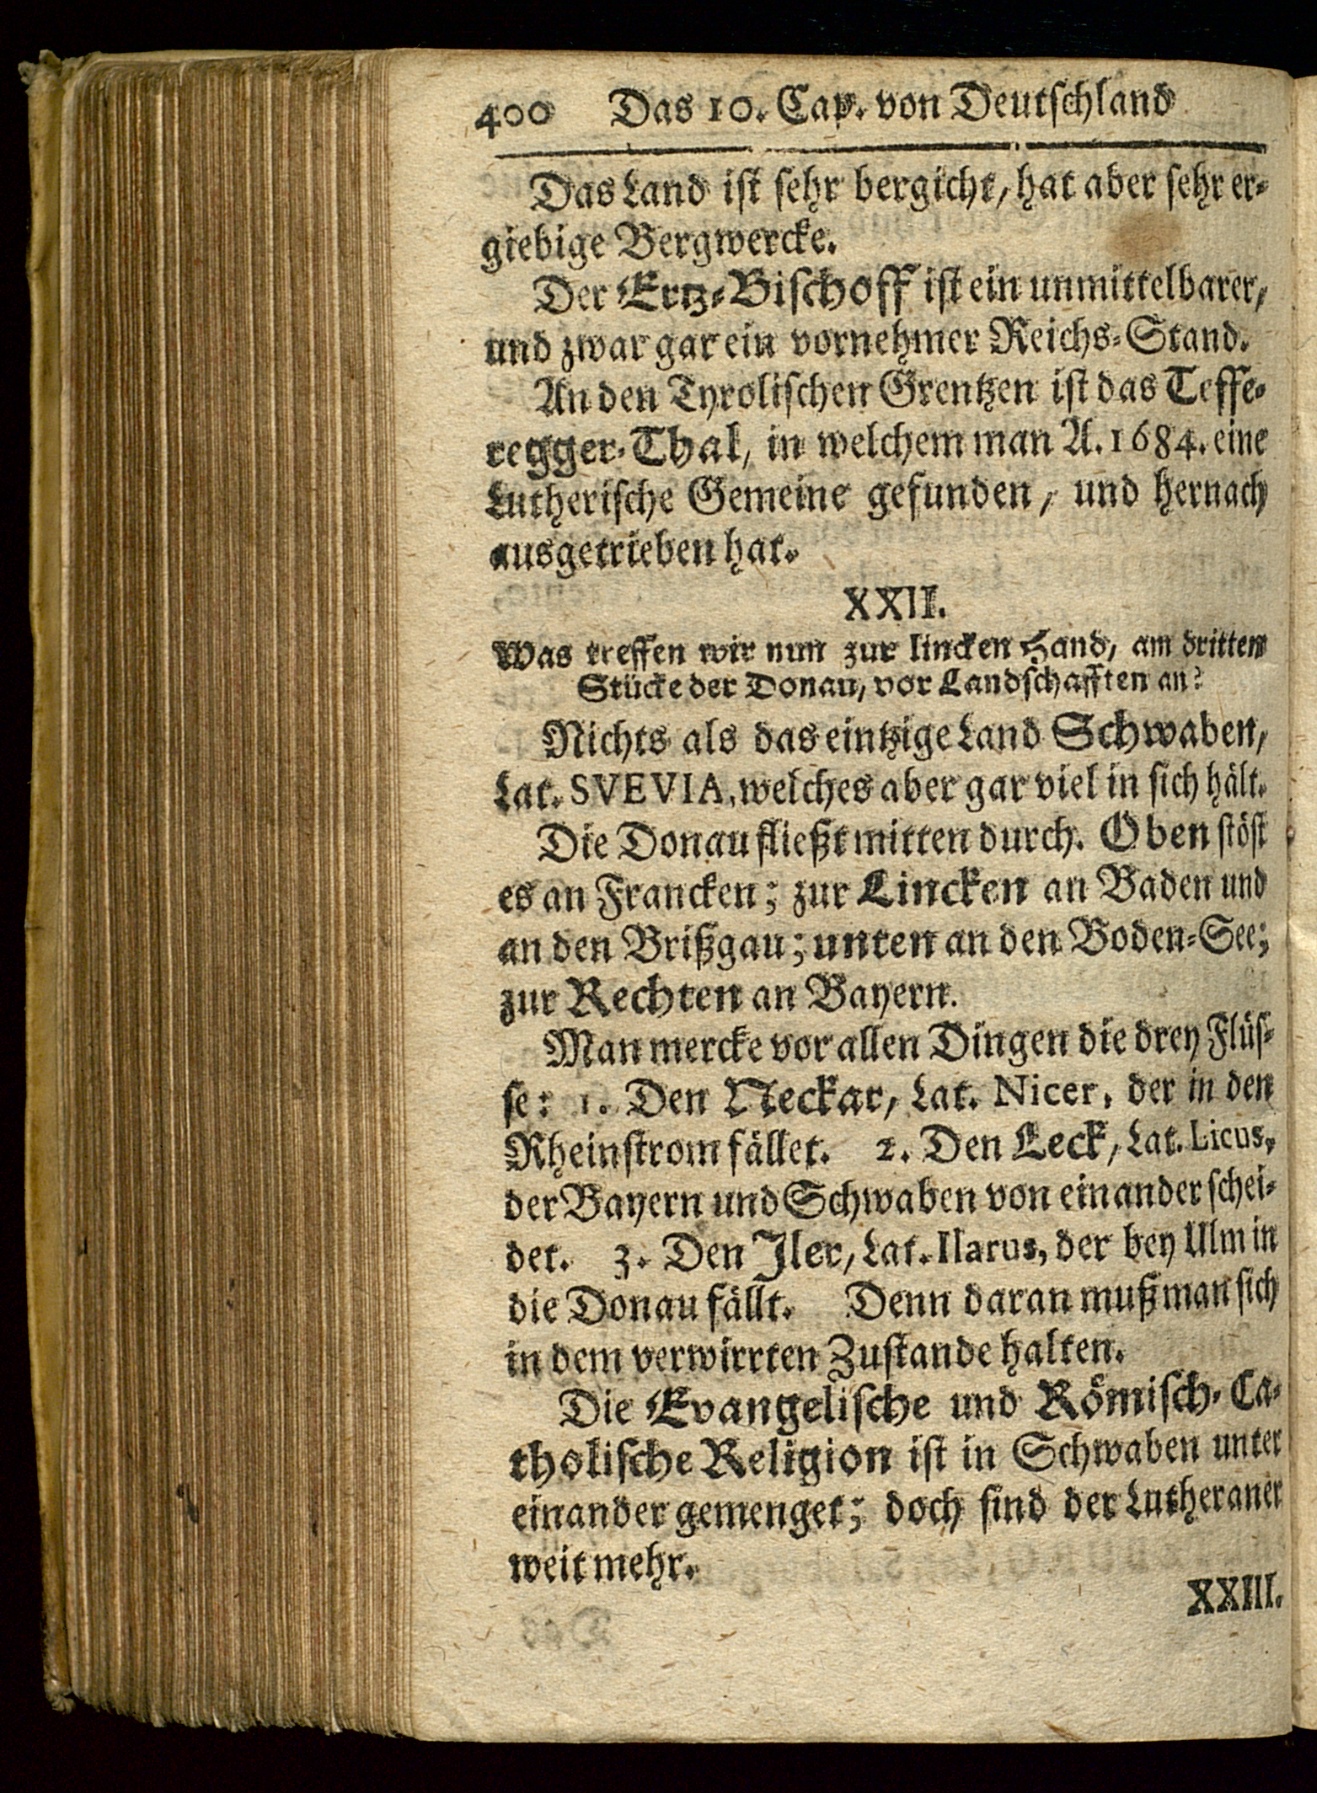 400 Das 10. Cap. von Deutschland
Das Land ist sehr bergicht, hat aber sehr er-
giebige Bergwercke.
Der Ertz-Bischoff ist ein unmittelbarer,
und zwar gar ein vornehmer Reichs-Stand.
An den Tyrolischen Grentzen ist das Teffe-
regger-Thal, in welchem man A. 1684. eine
Lutherische Gemeine gefunden, und hernach
ausgetrieben hat.
XXII.
Was treffen wir nun zur lincken Hand, am dritten
Stücke der Donau, vor Landschafften an?
Nichts als das eintzige Land Schwaben,
Lat. SVEVIA, welches aber gar viel in sich hält.
Die Donau fließt mitten durch. Oben stöst
es an Francken; zur Lincken an Baden und
an den Brißgau; unten an den Boden-See;
zur Rechten an Bayern.
Man mercke vor allen Dingen die drey Flüs-
se: 1. Den Neckar, Lat. Nicer, der in den
Rheinstrom fället. 2. Den Leck, Lat. Licus,
der Bayern und Schwaben von einander schei-
det. 3. Den Jler, Lat. Ilarus, der bey Ulm in
die Donau fällt. Denn daran muß man sich
in dem verwirrten Zustande halten.
Die Evangelische und Römisch-Ca-
tholische Religion ist in Schwaben unter
einander gemenget; doch sind der Lutheraner
weit mehr.
XXIII.